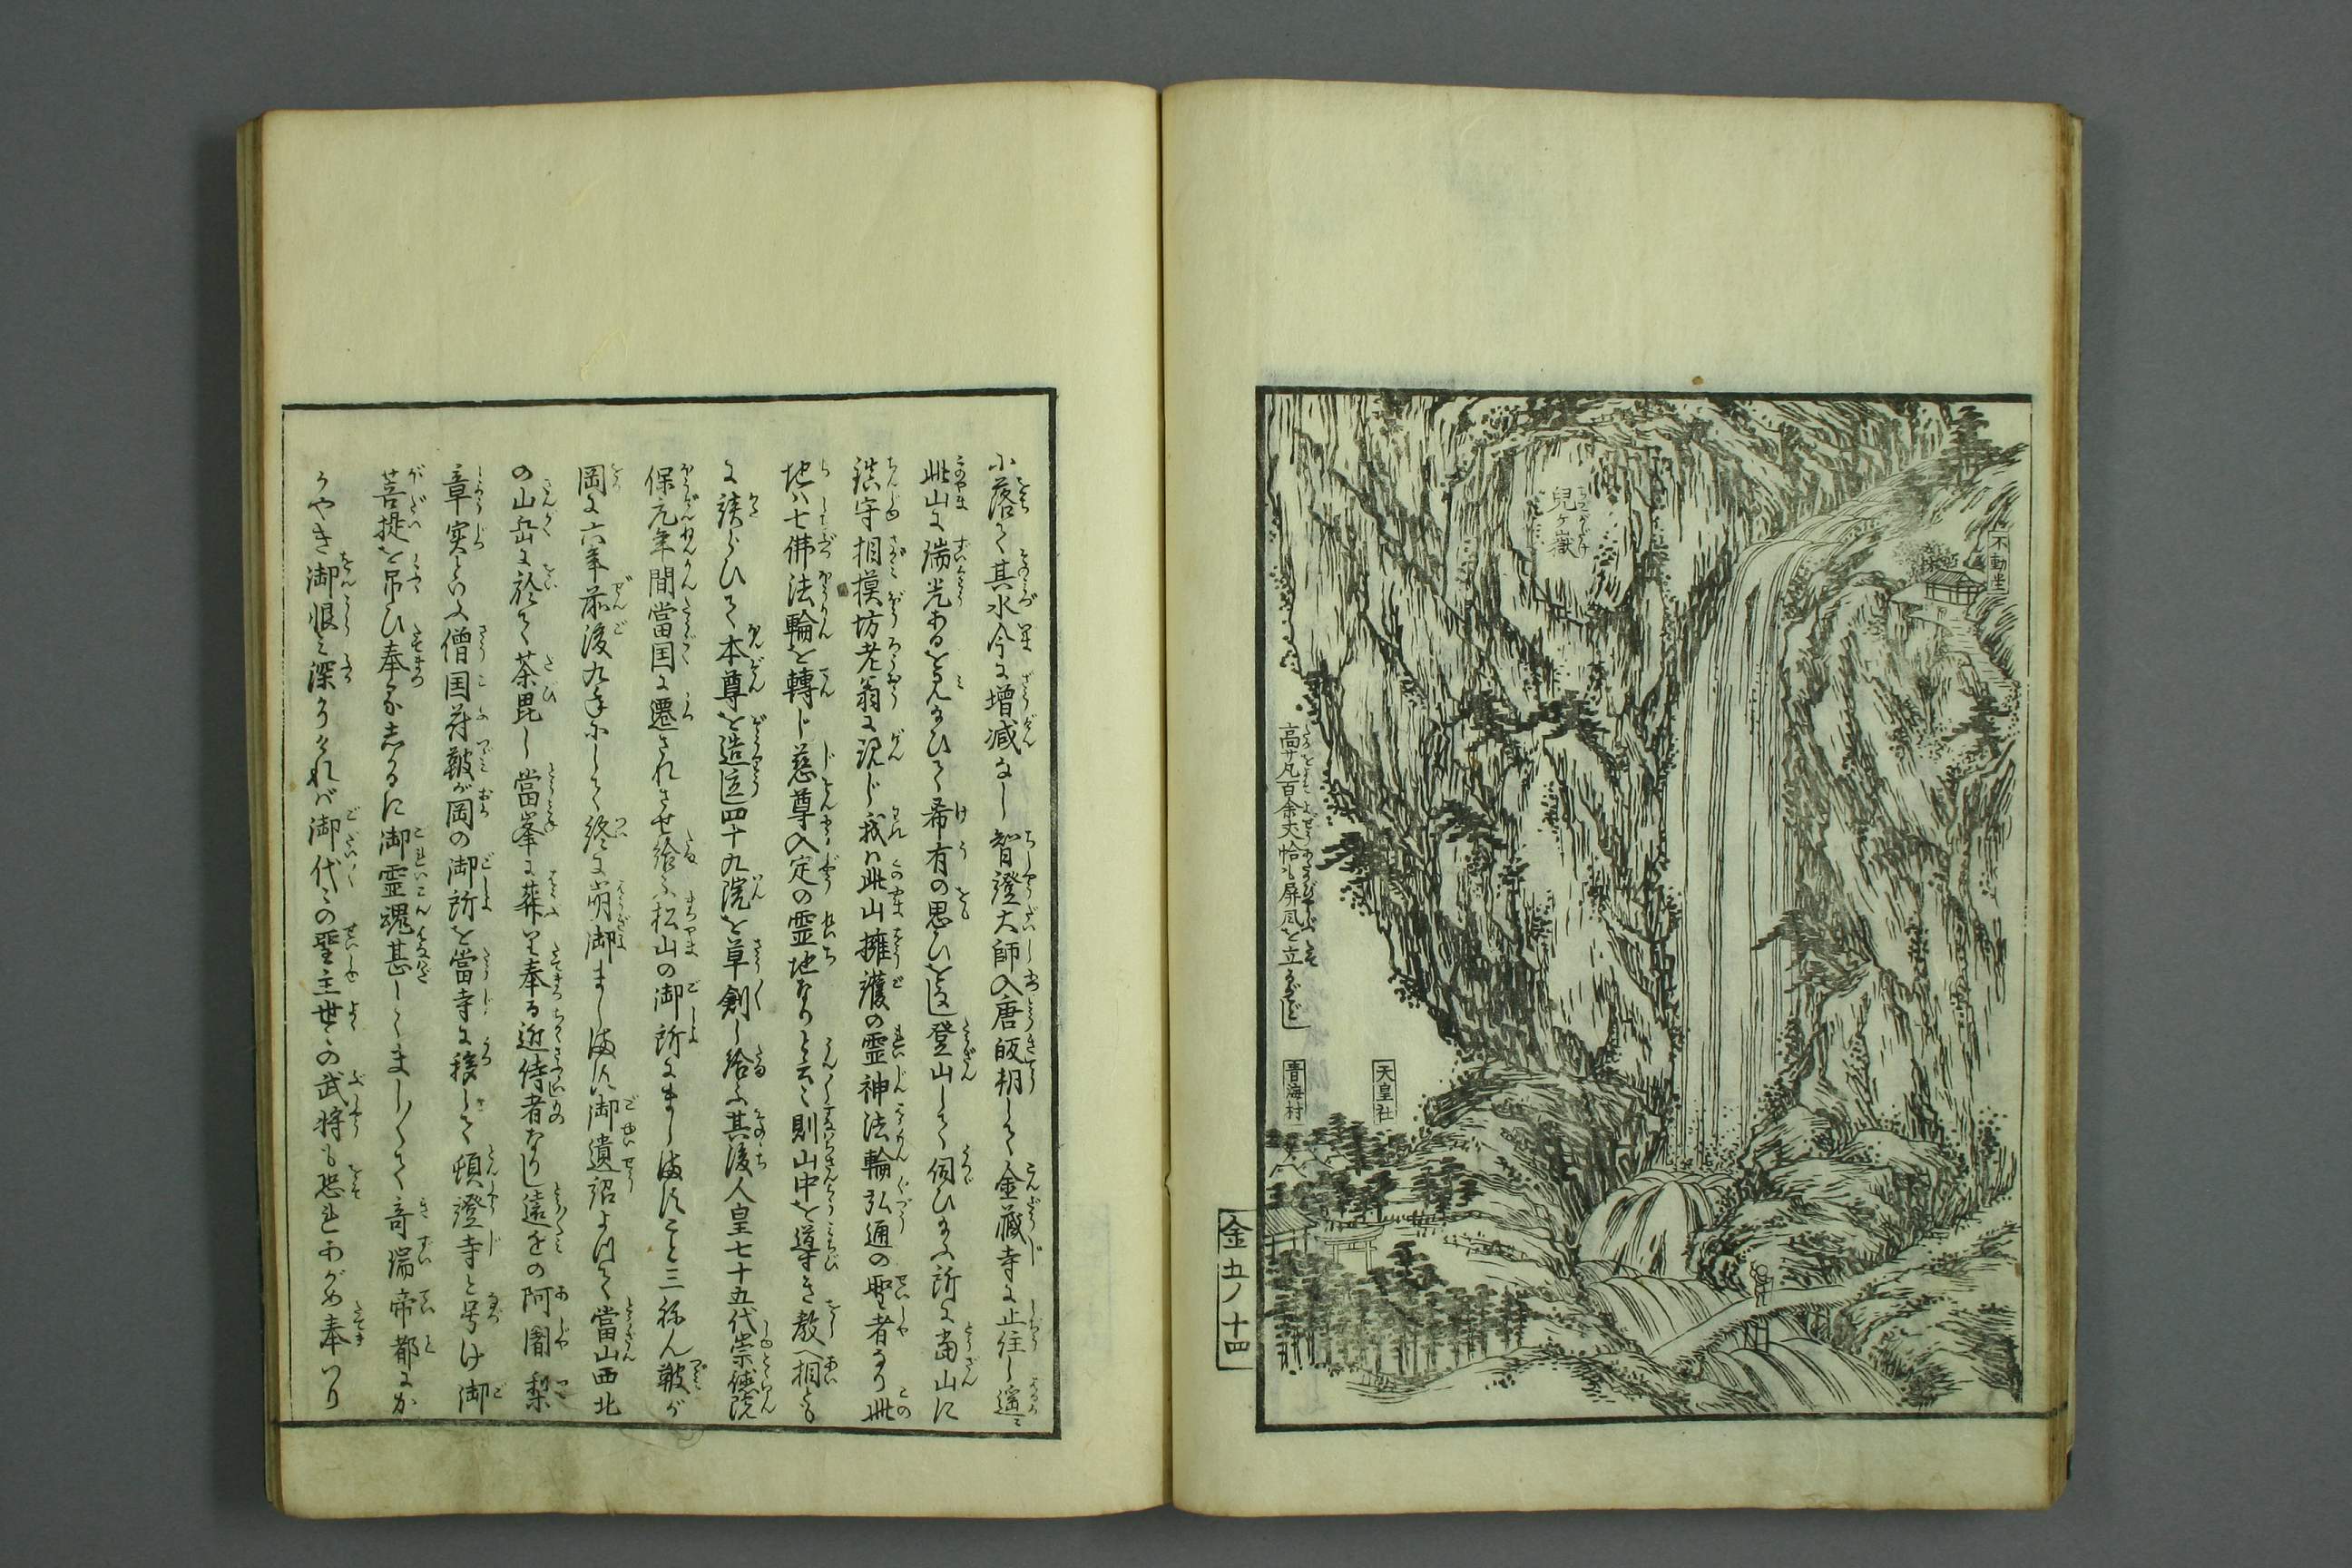 不動堂
兒ヶ嶽
高サ凡百余丈恰も屏風を立るがごとし
天皇社
青海村
金五ノ十四
に落て其水今に増減なし智證大師入唐皈朝して金蔵寺に止住し遥に
此山に瑞光あるを見給ひて希有の思ひを起し登山して伺ひ給ふ所に當山に
鎮守相摸坊老翁に現じ我は此山擁護の霊神法輪弘通の聖者なり此
地ハ七佛法輪を轉じ慈尊入定の霊地なりと云々則山中を導き教へ相とも
に談らひて本尊を造立し四十九院を草創し給ふ其後人皇七十五代崇徳院
保元年間當国に遷されさせ給ふ松山の御所にましますこと三ねん鞁が
岡に六年前後九年にして終に崩御まします御遺詔よつて當山西北
の山岳に於て荼毘し當峯に葬り奉る近侍者なりし遠江の阿闍梨
章実といふ僧国府鞁が岡の御所を當寺に移して頓證寺と号け御
菩提を吊ひ奉るしかるに御霊魂甚しくまし〱て奇瑞帝都にか
うやき御恨ミ深かりければ御代〻の聖主世〻の武将も恐れあがめ奉つり